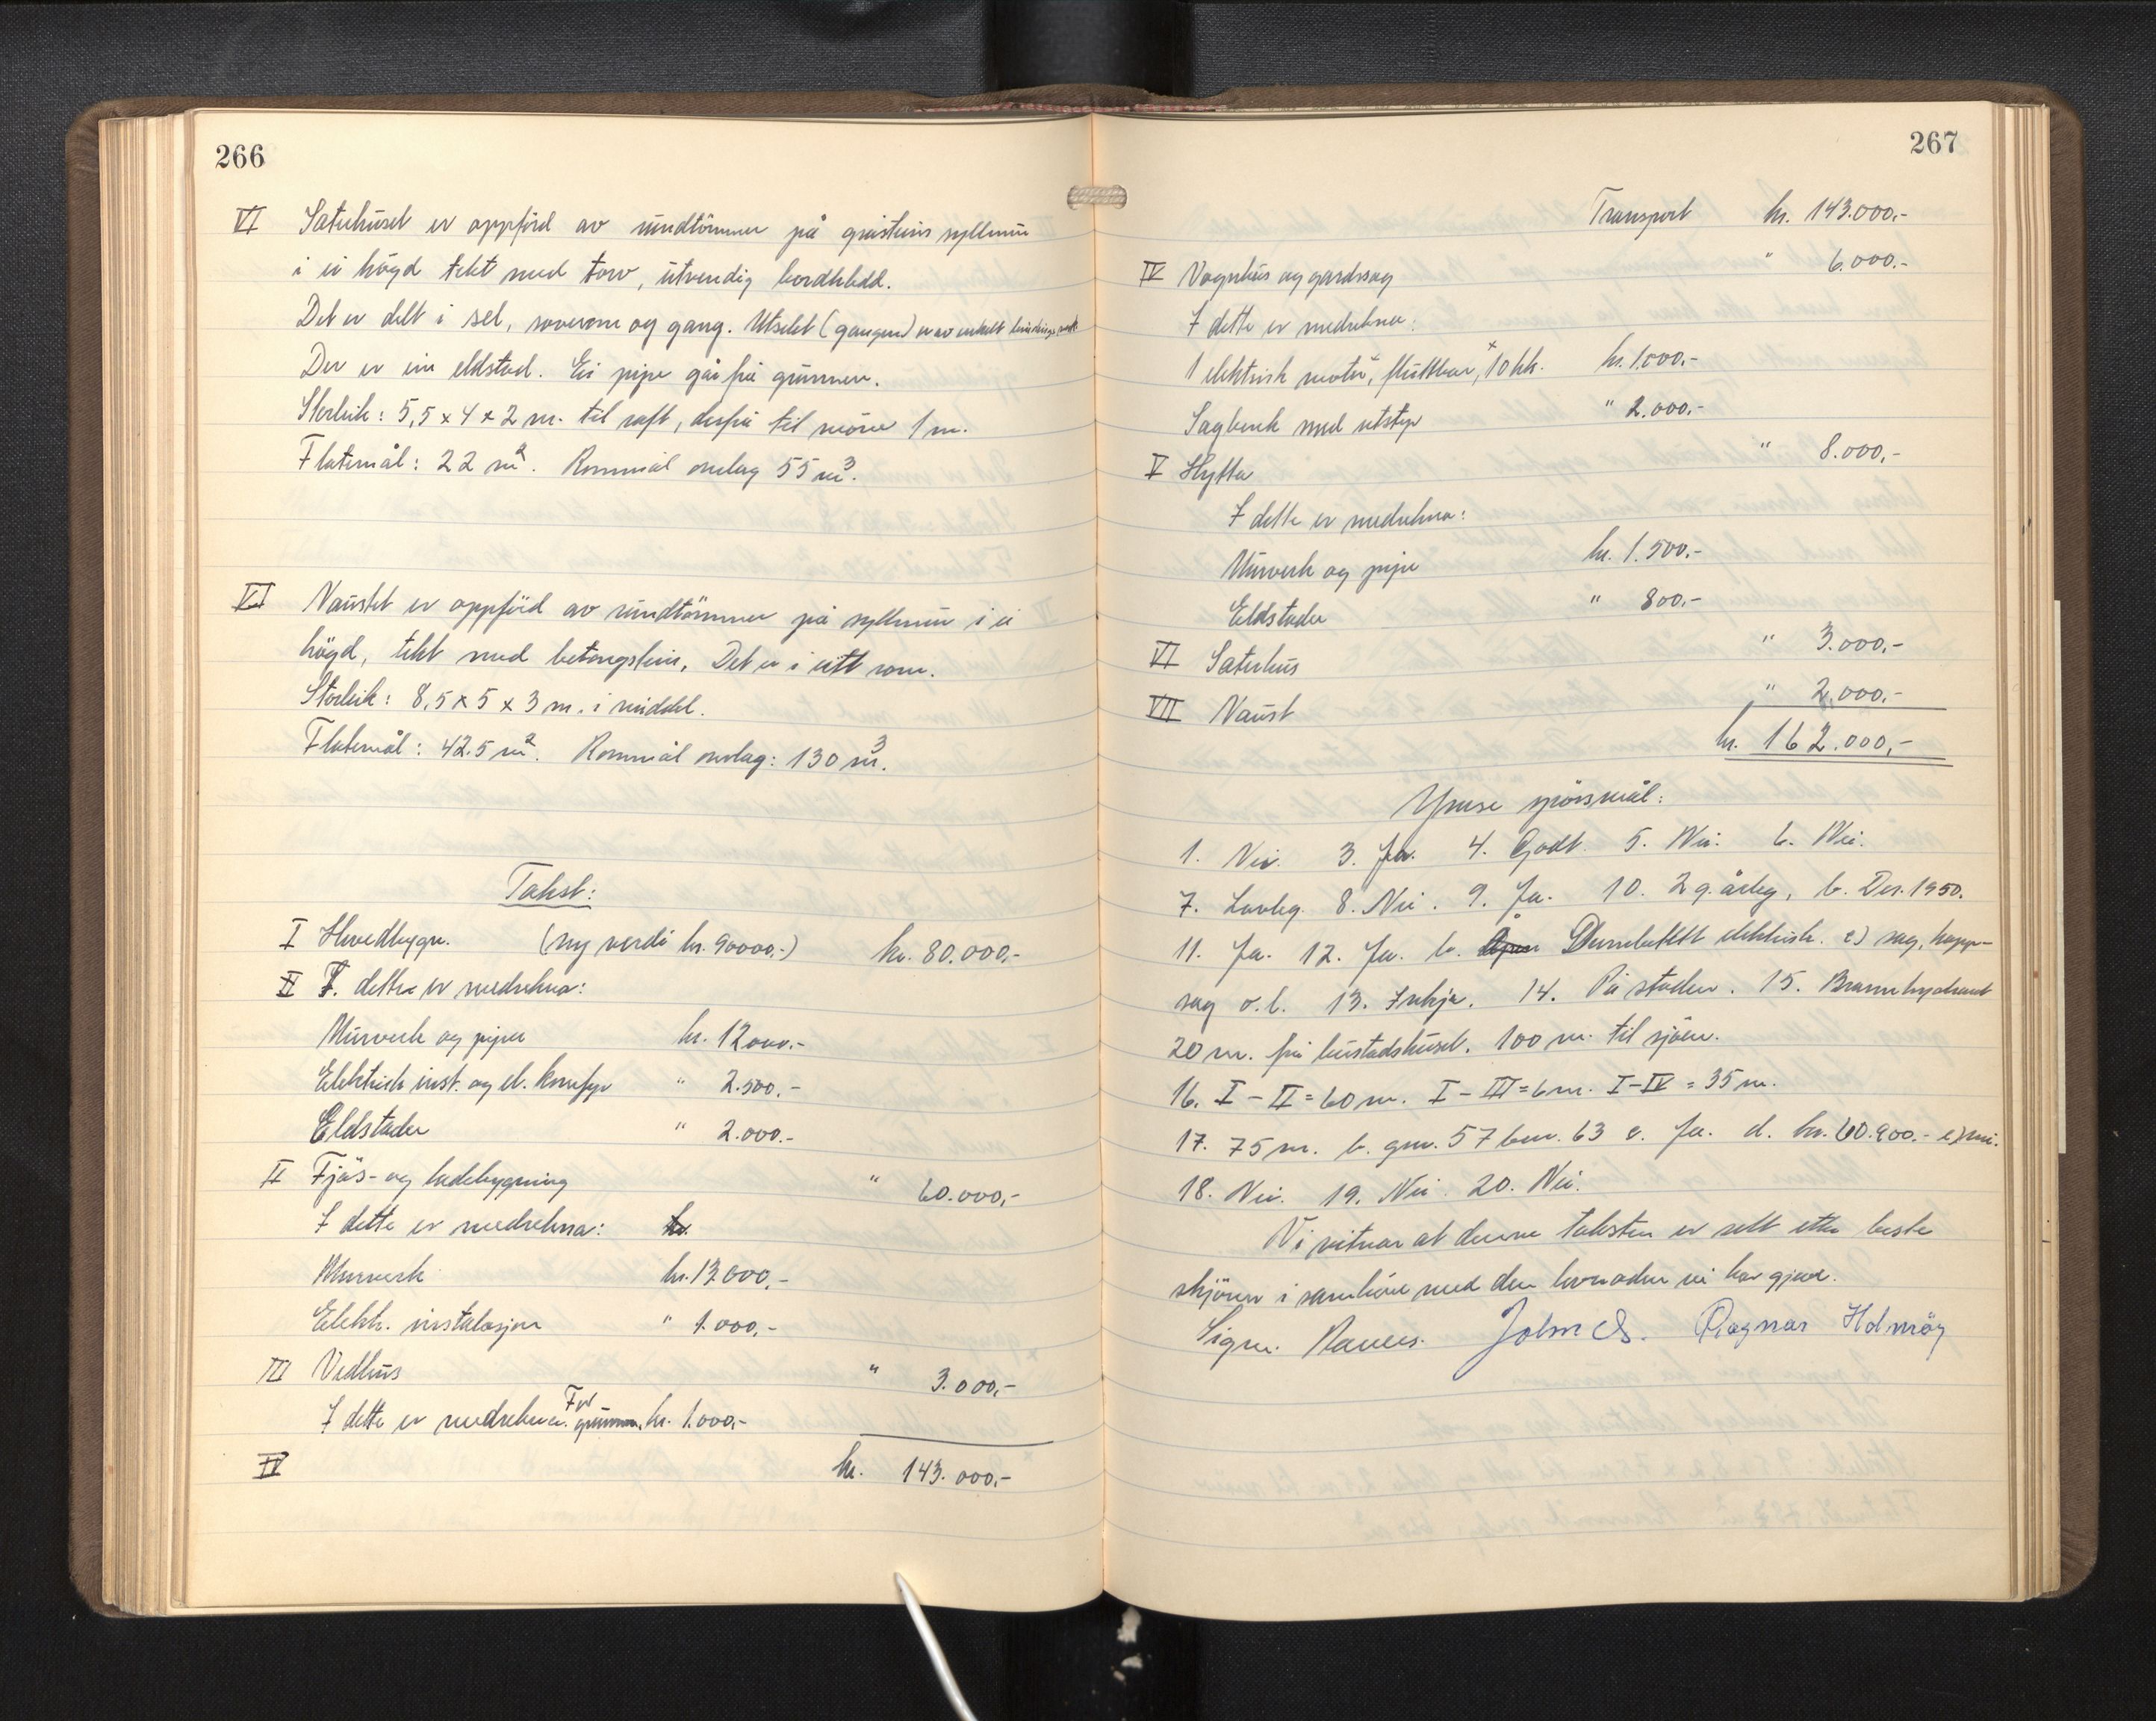 266
VI Sæterhuset er oppförd av rundtömmer på gråsteins syllmur
i ei högd tekt med torv, utvendig bordkledd.
Det er delt i sel, soverom og gang. Utselet (gangen) er av enkelt
Der er ein eldstad. Ei pipe går frå grunnen.
Storleik: 5,5 x 4 x 2 m. til raft, derfrå til möne 1 m.
Flatemål: 22 m². Rommål omlag 55 m³.
VI Naustet er oppförd av rundtömmer på syllmur i ei
högd, tekt med betongstein. Det er i eitt rom.
Storleik: 8,5 x 5 x 3 m. i middel.
Flatemål: 42.5 m². Rommål omlag: 130 m³.
Takst:
I Hovedbygn. (ny verdi kr. 90000.-) kr. 80.000,-
II I. dette er medrekna:
Murverk og piper kr. 12000.-
Elektrisk inst. og el. komfyr " 2.500.-
Eldstader " 2.000.-
II Fjös- og ladebygning " 60.000,-
I dette er medrekna: kr.
Murverk kr. 13.000,-
Elektr. instalasjon " 1.000,-
III Vedhus " 3.000,-
I dette er medrekna. For grunnm. kr. 1.000,-
IV kr. 143.000,-
267
Transport kr. 143.000,-
IV Vognhus og gardssag " 6.000.-
I dette er medrekna:
1 elektrisk motor, flyttbar, 10 hk. kr. 1.000.-
Sagbenk med utstyr " 2.000.-
V Hytta " 8.000,-
I dette er medrekna:
Murverk og pipe kr. 1.500.-
Eldstader " 800.-
VI Sæterhus " 3.000,-
VII Naust " 2.000,-
kr. 162.000,-
Ymse spörsmål:
1. Nei. 3. Ja. 4. Godt. 5. Nei. 6. Nei.
7. Lovleg. 8. Nei. 9. Ja. 10. 2 g. årleg, b. Des. 1950.
11. Ja. 12. Ja. b. elektrisk. c) sag, kapp-
sag o.l. 13. Ikkje. 14. På staden. 15. Brannhydrant
20 m. frå bustadshuset. 100 m. til sjöen.
16. I - II = 60 m. I - III = 6 m. I - IV = 35 m.
17. 75 m. b. gnr. 57 bnr. 63 c. Ja. d. kr. 60.900.- e) nei.
18. Nei. 19. Nei. 20. Nei.
Vi vitnar at denne taksten er sett etter beste
skjönn i samhöve med den lovnaden vi har gjeve.
Sign. John S. Ragnar Holmöy